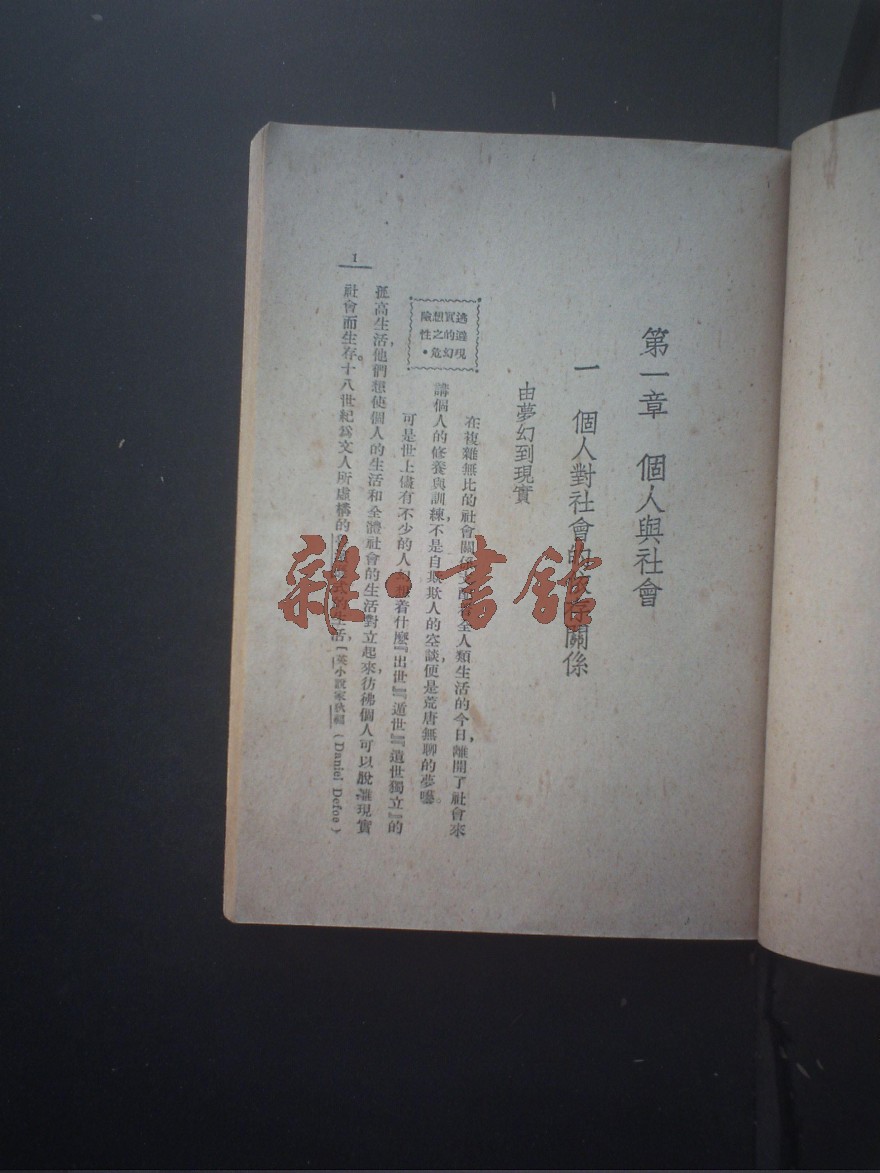 第一章 個人與社會
一 個人對社會的依存關係
由夢幻到現實
在複雜無比的社會關係支配着全人類生活的今日，離開了社會來
講個人的修養與訓練，不是自欺欺人的空談，便是荒唐無聊的夢囈。
逃避現
實的幻
想之危
險性•
可是世上儘有不少的人，着什麼『出世』『遁世』『遺世獨立』的
孤高生活，他們想使個人的生活和全體社會的生活對立起來，彷彿個人可以脫離現實
社會而生存。十八世紀爲文人所虛構的生活，〔英小說家狄福（Daniel Defoe）
1
雜•書館